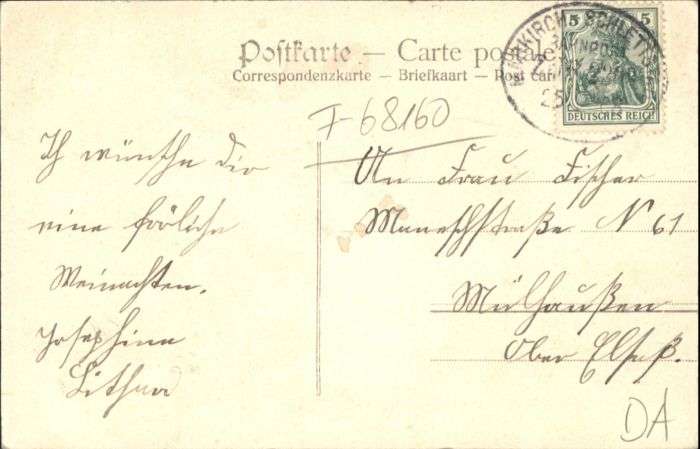 Postkarte – Carte postale
Correspondenzkarte – Briefkaart – Post car
MARKIRCH - SCHLETT
BAHNPOST
ZUG
25
5 5
DEUTSCHES REICH
F-68160
Ich wünsche Dir
eine fröliche
Weinachten.
Josephine
An Frau Fischer
N 61
Mülhaußen
Ober Elsaß.
DA